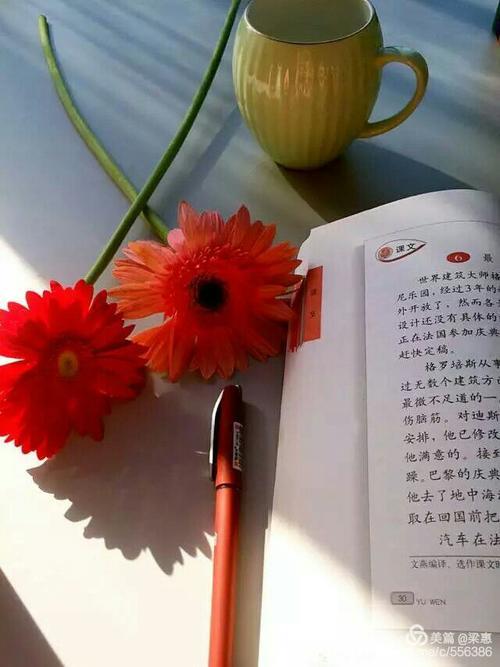 课文
6 最
世界建筑大师格
尼乐园，经过3年的
外开放了，然而各
设计还没有具体的
正在法国参加庆典
赶快定稿。
格罗培斯从事
过无数个建筑方
最微不足道的一
伤脑筋。对迪斯
安排，他已修改
他满意的。接到
躁。巴黎的庆典
他去了地中海海
取在回国前把
汽车在法
文燕编译，选作课文时
30 YU WEN
课文
美篇 @梁惠
/c/556386